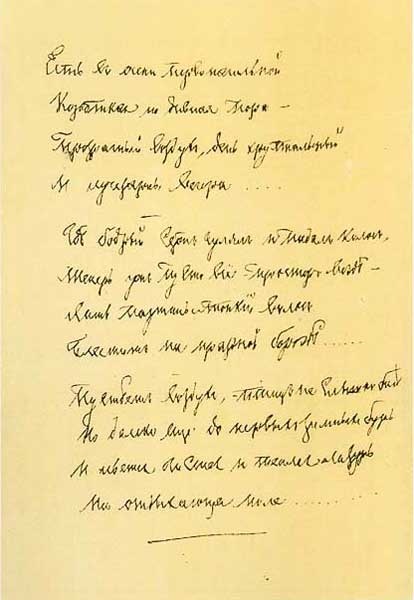 Есть въ осени первоначальной
Короткая но дивная пора —
Прозрачный воздухъ, день хрустальный
И лучезарны вечера ....
Гдѣ бодрый серпъ гулялъ и падалъ колосъ,
Теперь ужъ пусто всё — просторъ вездѣ —
Лишь паутины тонкій волосъ
Блеститъ на праздной бороздѣ ......
Пустѣетъ воздухъ, птицъ не слышно болѣ
Но далеко еще до первыхъ зимнихъ бурь
И льется чистая и теплая лазурь
На отдыхающее поле ........